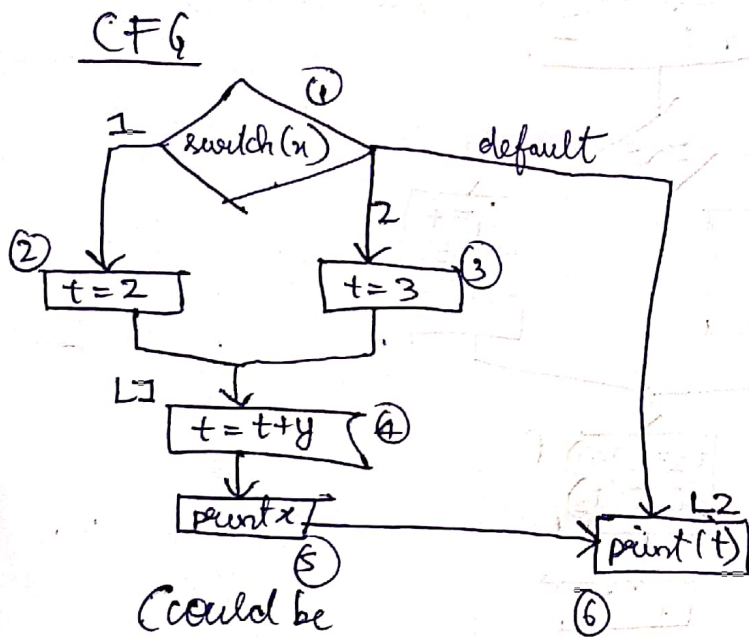 CFG
①
1
switch(x)
default
2
②
t=2
t=3
③
L1
t=t+y
④
print x
⑤
L2
print(t)
⑥
(could be